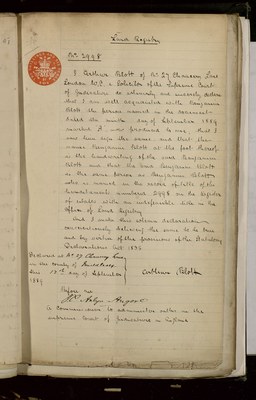 Land Registry
No. 2998
I Arthur Blott of No. 27 Chancery Lane
London W.C. a Solicitor of the Supreme Court
of Judicature do solemnly and sincerely declare
that I am well acquainted with Benjamin
Blott the person named in the document
dated the ninth day of September 1889
marked A. now produced to me, that I
saw him sign the same and that the
name Benjamin Blott at the foot thereof
is the handwriting of the said Benjamin
Blott and that the said Benjamin Blott
is the same person as Benjamin Blott
who is named in the certificate
numbered 2998 on the register
of estates with an indefeasible title in the
office of Land Registry
And I make this solemn declaration
conscientiously believing the same to be true
and by virtue of the provisions of the Statutory
Declarations Act 1835
Declared at No. 27 Chancery Lane
in the County of Middlesex
this day of September
1889
Arthur Blott
Before me
A Commissioner to administer oaths in the
Supreme Court of Judicature in England